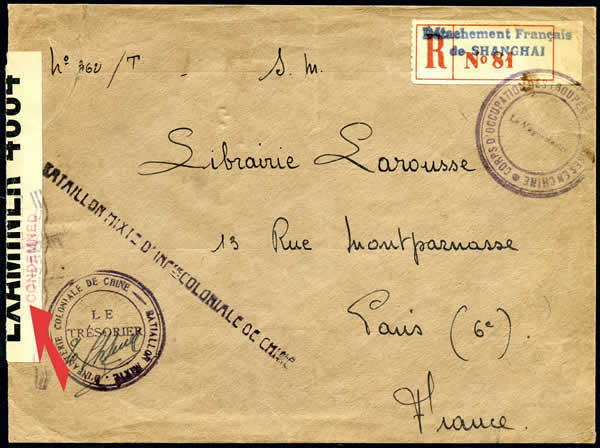 EXAMINER 4004
CONDEMNED
Nº 260/T
S.M.
Détachement Français
de SHANGHAI
R Nº 81
CORPS D'OCCUPATION DES TROUPES EN CHINE
Librairie Larousse
13 Rue Montparnasse
Paris (6e)
France
BATAILLON MIXTE D'INFie COLONIALE DE CHINE
BATAILLON MIXTE D'INFANTERIE COLONIALE DE CHINE
LE
TRÉSORIER